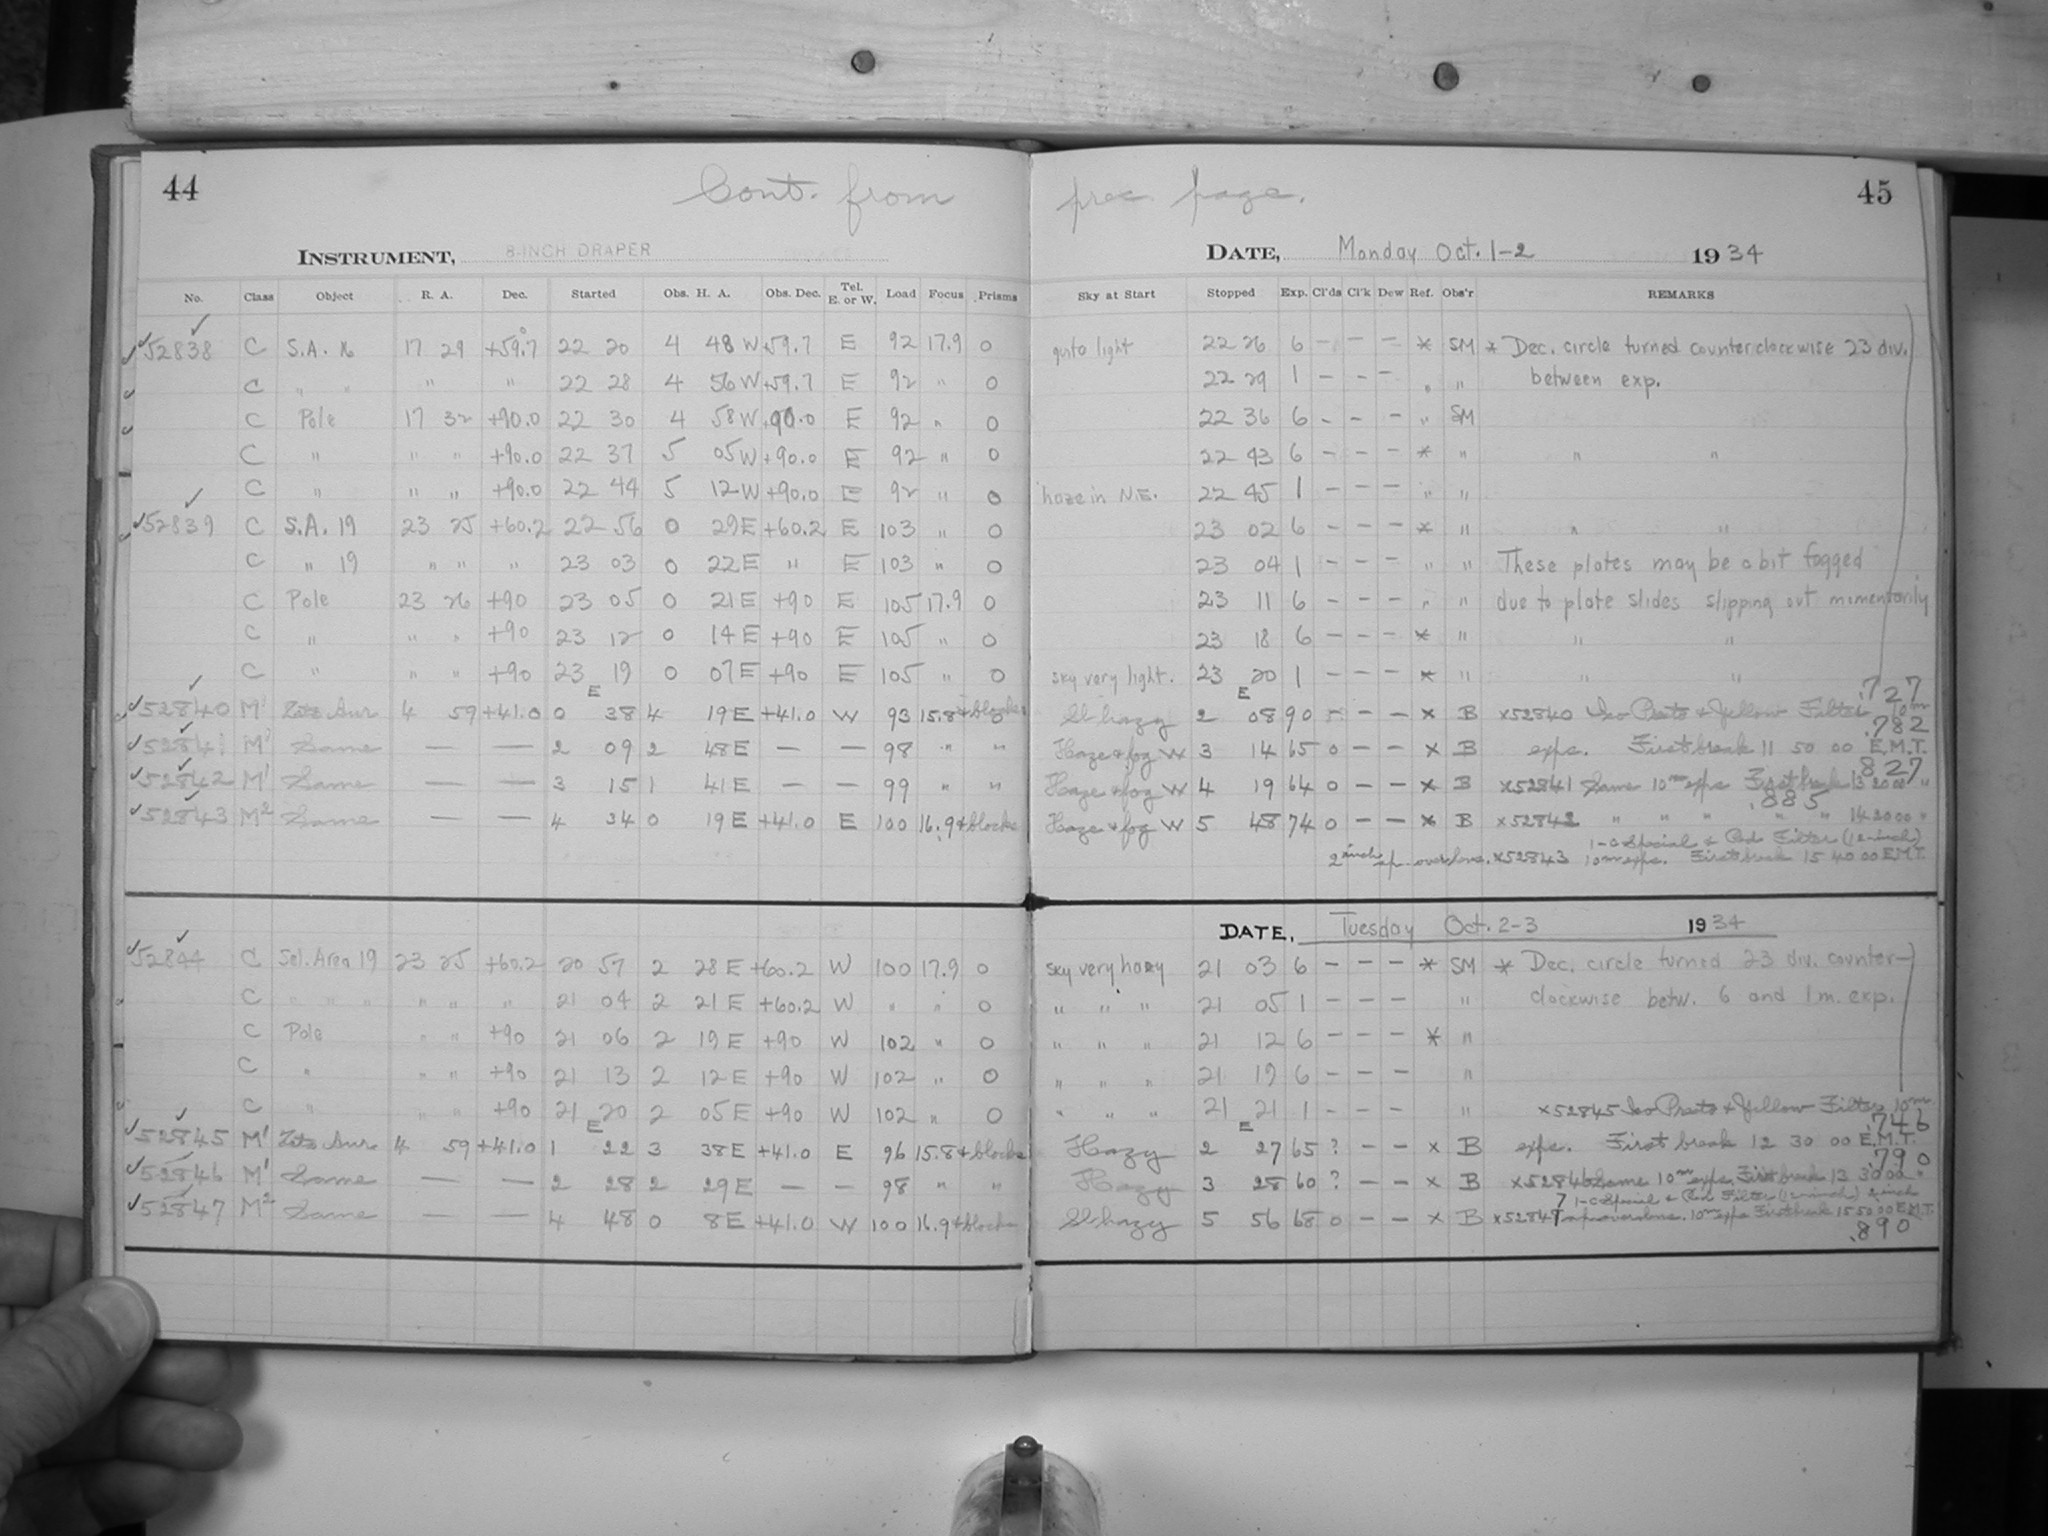 44
Cont. from prec. page.
45
INSTRUMENT, 8-INCH DRAPER
DATE, Monday Oct. 1-2 1934
No. Class Object R. A. Dec. Started Obs. H. A. Obs. Dec. Tel. E. or W. Load Focus Prisms Sky at Start Stopped Exp. Cl'ds Cl'k Dew Ref. Obs'r REMARKS
52838 C S.A. 17 29 +59.7 22 20 4 48 W +59.7 E 92 17.9 0 quite light 22 26 6 - - - * SM * Dec. circle turned counterclockwise 23 div.
C " " " " 22 28 4 56 W +59.7 E 92 " 0 22 29 1 - - - " " between exp.
C Pole 17 32 +90.0 22 30 4 58 W +90.0 E 92 " 0 22 36 6 - - - " SM
C " " " +90.0 22 37 5 05 W +90.0 E 92 " 0 22 43 6 - - - * " " "
C " " " +90.0 22 44 5 12 W +90.0 E 92 " 0 haze in N.E. 22 45 1 - - - " "
52839 C S.A. 19 23 25 +60.2 22 56 0 29 E +60.2 E 103 " 0 23 02 6 - - - * " " "
C " 19 " " " 23 03 0 22 E " E 103 " 0 23 04 1 - - - " " These plates may be a bit fogged
C Pole 23 26 +90 23 05 0 21 E +90 E 105 17.9 0 23 11 6 - - - " " due to plate slides slipping out momentarily
C " " " +90 23 12 0 14 E +90 E 105 " 0 23 18 6 - - - * " " "
C " " " +90 23 19 0 07 E +90 E 105 " 0 sky very light. 23 20 1 - - - * " " "
E E .727
52840 M1 Zeta Aur 4 59 +41.0 0 38 4 19 E +41.0 W 93 15.8 + blocks Sl hazy 2 08 90 - - * B x52840 Iso Presto + Yellow Filter 10m
.782
52841 M1 Same — — 2 09 2 48 E — — 98 " " Haze + fog W 3 14 65 0 - - x B exps. First break 11 50 00 E.M.T.
.827
52842 M1 Same — — 3 15 1 41 E — — 99 " " Haze + fog W 4 19 64 0 - - x B x52841 Same 10m exps First break 13 20 00 "
.885
52843 M2 Same — — 4 34 0 19 E +41.0 E 100 16.9 + blocks Haze + fog W 5 48 74 0 - - x B x52842 " " " " " 14 20 00 "
1-C Special + Red Filter (12-inch)
2 inch ap. over lens. x52843 10m exps. First break 15 40 00 E.M.T.
DATE, Tuesday Oct. 2-3 1934
52844 C Sel. Area 19 23 25 +60.2 20 57 2 28 E +60.2 W 100 17.9 0 sky very hazy 21 03 6 - - - * SM * Dec. circle turned 23 div. counter-
C " " " " " " 21 04 2 21 E +60.2 W " " 0 " " " 21 05 1 - - - " clockwise betw. 6 and 1 m. exp.
C Pole " " +90 21 06 2 19 E +90 W 102 " 0 " " " 21 12 6 - - - * "
C " " " +90 21 13 2 12 E +90 W 102 " 0 " " " 21 19 6 - - - "
C " " " +90 21 20 2 05 E +90 W 102 " 0 " " " 21 21 1 - - - " x52845 Iso Presto + Yellow Filter 10m
E E .746
52845 M1 Zeta Aur 4 59 +41.0 1 22 3 38 E +41.0 E 96 15.8 + blocks Hazy 2 27 65 ? - - x B exps. First break 12 30 00 E.M.T.
.790
52846 M1 Same — — 2 28 2 29 E — — 98 " " Hazy 3 28 60 ? - - x B x52846 Same 10m exps. First break 13 30 00 "
1-C Special + Red Filter (12-inch) 2 inch
52847 M2 Same — — 4 48 0 8 E +41.0 W 100 16.9 + blocks Sl hazy 5 56 68 0 - - x B x52847 ap. over lens. 10m exps First break 15 50 00 E.M.T.
.890